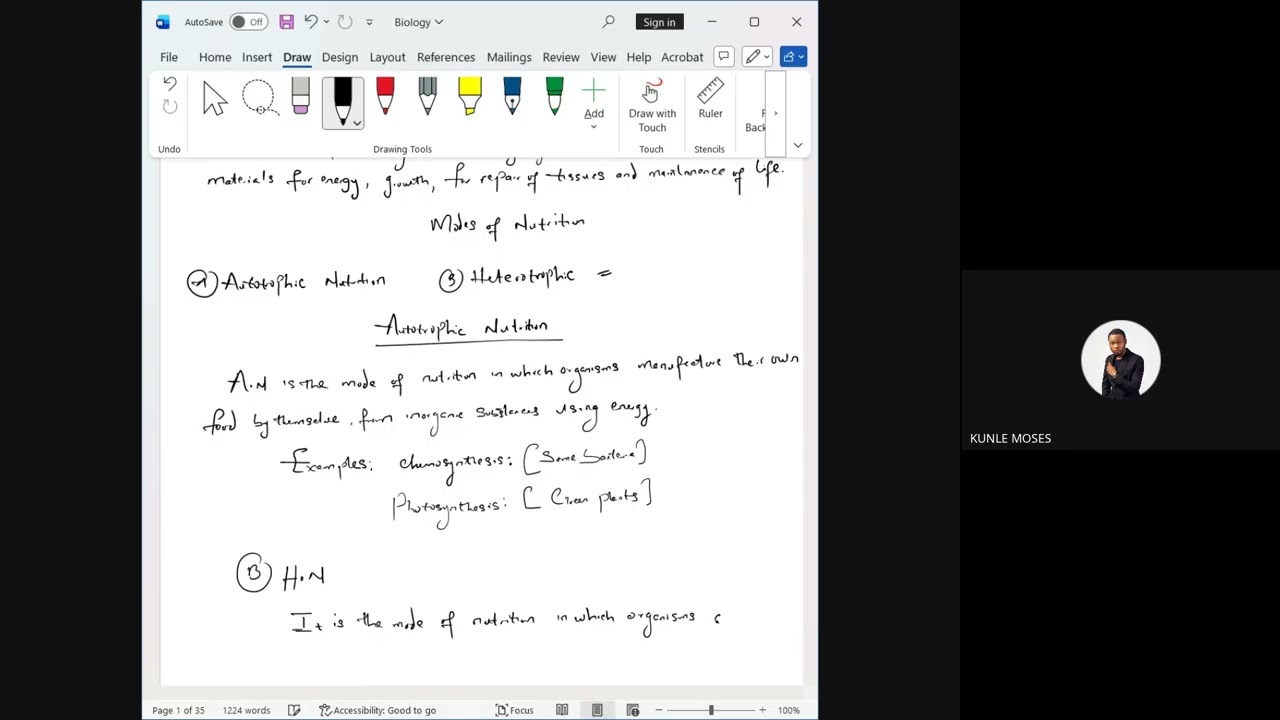 AutoSave Off Biology Sign in
File Home Insert Draw Design Layout References Mailings Review View Help Acrobat
Add Draw with Touch Ruler Back
Undo Drawing Tools Touch Stencils
materials for energy, growth, for repair of tissues and maintanance of life.
Modes of Nutrition
(A) Autotrophic Nutrition (B) Heterotrophic =
Autotrophic Nutrition
A.N is the mode of nutrition in which organisms manufacture their own
food by themselve, from inorganic substances using energy.
Examples: chemosynthesis: [Some bacteria]
Photosynthesis: [Green plants]
KUNLE MOSES
(B) H.N
It is the mode of nutrition in which organisms
Page 1 of 35 1224 words Accessibility: Good to go Focus 100%